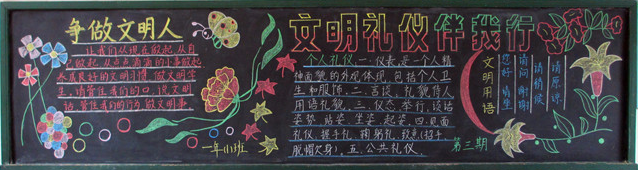 争做文明人
让我们从现在做起,从自
己做起,从点点滴滴的小事做起
养良好的文明习惯,做文明学
生,请管住我们的口,说文明
话,管住我们的行为,做文明事。
一年(1)班
文明礼仪伴我行
个人礼仪:一.仪表.是一个人精
神面貌的外观体现,包括个人卫
生和服饰.二.言谈.礼貌待人
用语礼貌.三.仪态举行.谈话
姿势.站姿.坐姿.起姿.四.见面
礼仪.握手礼.鞠躬礼.致意(招手.
脱帽欠身).五.公共礼仪.
第三期
文明用语
您好 请坐
请问 谢谢
请稍候
请原谅